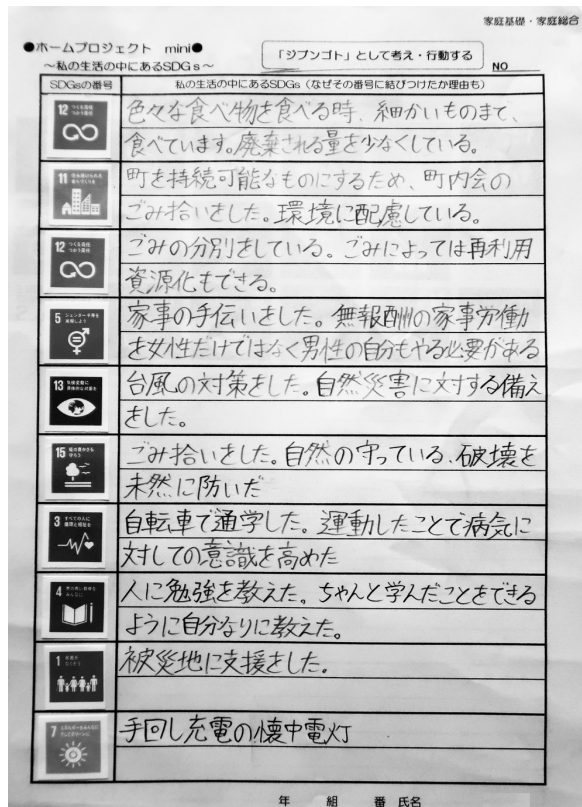 家庭基礎・家庭総合
●ホームプロジェクト mini●
～私の生活の中にあるSDGs～
「ジブンゴト」として考え・行動する
NO
SDGsの番号
私の生活の中にあるSDGs（なぜその番号に結びつけたか理由も）
12 つくる責任
つかう責任
色々な食べ物を食べる時、細かいものまで、
食べています。廃棄される量を少なくしている。
11 住み続けられる
まちづくりを
町を持続可能なものにするため、町内会の
ごみ拾いをした。環境に配慮している。
12 つくる責任
つかう責任
ごみの分別をしている。ごみによっては再利用
資源化もできる。
5 ジェンダー平等を
実現しよう
家事の手伝いをした。無報酬の家事労働
を女性だけではなく男性の自分もやる必要がある
13 気候変動に
具体的な対策を
台風の対策をした。自然災害に対する備え
をした。
15 陸の豊かさも
守ろう
ごみ拾いをした。自然の守っている、破壊を
未然に防いだ
3 すべての人に
健康と福祉を
自転車で通学した。運動したことで病気に
対しての意識を高めた
4 質の高い教育を
みんなに
人に勉強を教えた。ちゃんと学んだことをできる
ように自分なりに教えた。
1 貧困を
なくそう
被災地に支援をした。
7 エネルギーをみんなに
そしてクリーンに
手回し充電の懐中電灯
年 組 番 氏名